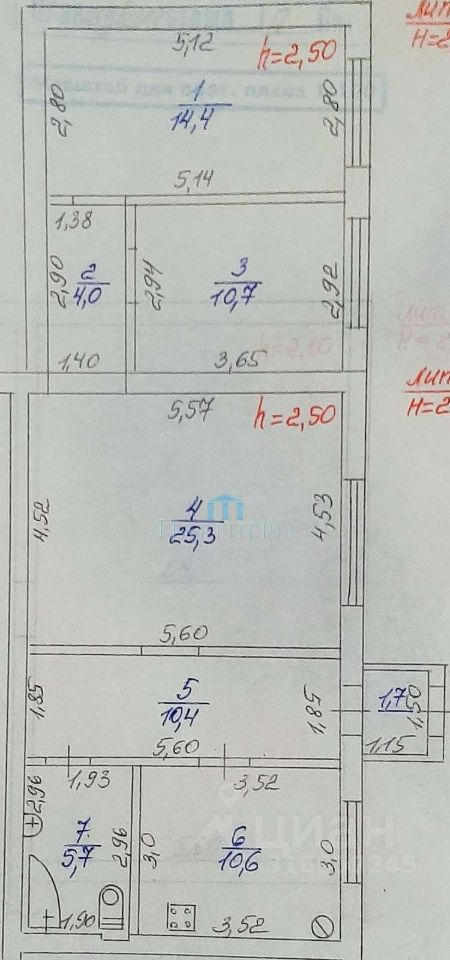 5,12
h=2,50
Лит
Н=2
2,80
1
14,4
2,80
5,14
1,38
2,90
2
4,0
2,94
3
10,7
2,92
1,40
3,65
h=2,10
Лит
Н=2
5,57
h=2,50
Лит
Н=2
4,52
4
25,3
4,53
5,60
1,85
5
10,4
1,85
1,7
1,50
5,60
1,15
2,96
1,93
3,52
7
5,7
2,96
3,0
6
10,6
3,0
циан
1,90
3,52